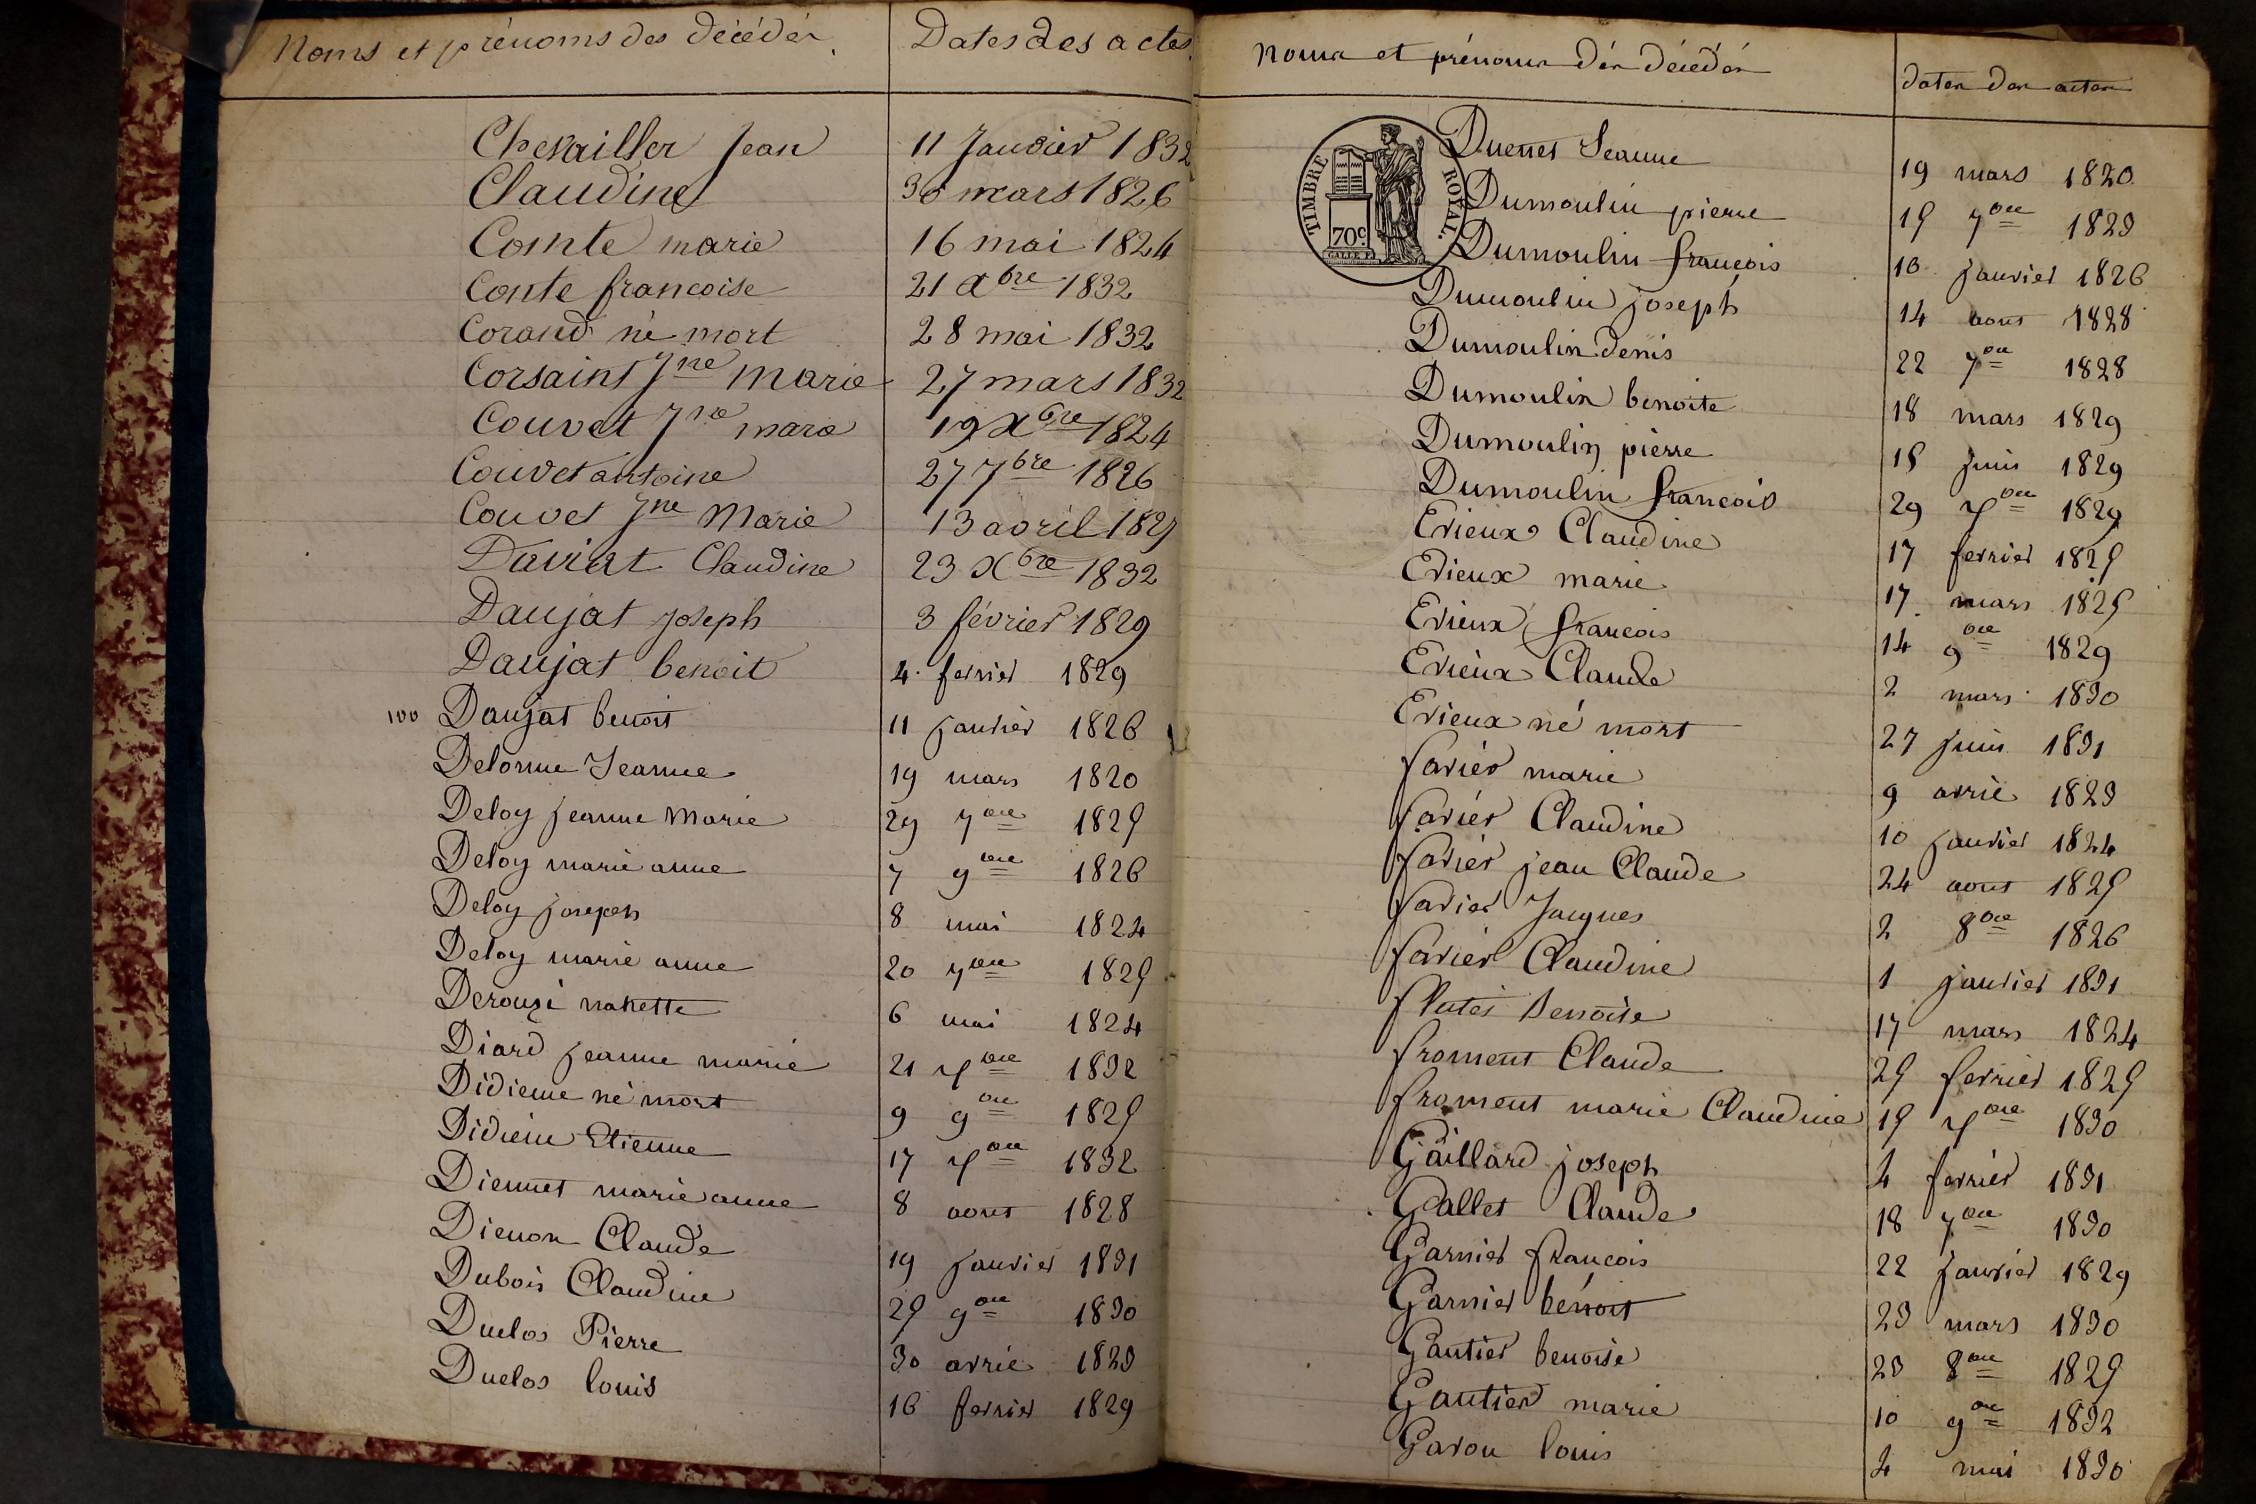 Noms et prénoms des décédés. Dates des actes.
Chevailler Jean 11 Janvier 1832
Claudine 30 mars 1826
Comte marie 16 mai 1824
Conte francoise 21 Xbre 1832
Corand né mort 28 mai 1832
Corsaint Jne Marie 27 mars 1832
Couvet Jne marie 19 Xbre 1824
Couvet antoine 27 7bre 1826
Couvet Jne Marie 13 avril 1829
Daviat Claudine 23 Xbre 1832
Daujat joseph 3 février 1829
Daujat benoit 4 fevrier 1829
100 Daujat benoit 11 janvier 1826
Delorme Jeanne 19 mars 1820
Deloy jeanne Marie 29 7bre 1825
Deloy marie anne 7 9bre 1826
Deloy joseph 8 mai 1824
Deloy marie anne 20 7bre 1825
Derouzé nanette 6 mai 1824
Diard jeanne marie 21 Xbre 1832
Didieme né mort 9 9bre 1825
Etienne 17 Xbre 1832
Diennet marie anne 8 aout 1828
Dienon Claude 19 janvier 1831
Dubois Claudine 25 9bre 1830
Duclos Pierre 30 avril 1823
Duclos louis 16 fevrier 1829
Noms et prénoms dés décédés dates des actes
TIMBRE ROYAL.
70c.
GALLE F.
Jeanne 19 mars 1820
Dumoulin pierre 15 7bre 1823
Dumoulin françois 16 janvier 1826
Dumoulin joseph 14 aout 1828
Dumoulin denis 22 7bre 1828
Dumoulin benoite 18 mars 1829
Dumoulin pierre 15 juin 1829
Dumoulin francois 29 Xbre 1829
Evieux Claudine 17 fevrier 1825
Evieux marie 17 mars 1825
Evieux francois 14 9bre 1829
Evieux Claude 2 mars 1830
Evieux né mort 27 juin 1831
favier marie 9 avril 1823
favier Claudine 10 janvier 1824
favier jean Claude 24 aout 1825
favier Jacques 2 8bre 1826
favier Claudine 1 janvier 1831
Benoite 17 mars 1824
froment Claude 25 fevrier 1825
froment marie Claudine 15 Xbre 1830
Gaillard joseph 4 fevrier 1831
Gallet Claude 18 7bre 1830
Garnier francois 22 janvier 1829
Garnier benoit 23 mars 1830
Gautier benoise 23 8bre 1825
Gautier marie 10 9bre 1832
Gavou louis 4 mai 1830